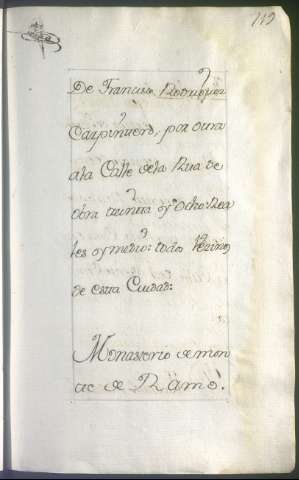 119
De Francisco Rodriguez
Carpintero, por otra
ala Calle dela Rua de
obra treinta y ocho Rea
les y medio: todo Vezinos
de esta Ciudad:
Monasterio de mon
de Ramo.